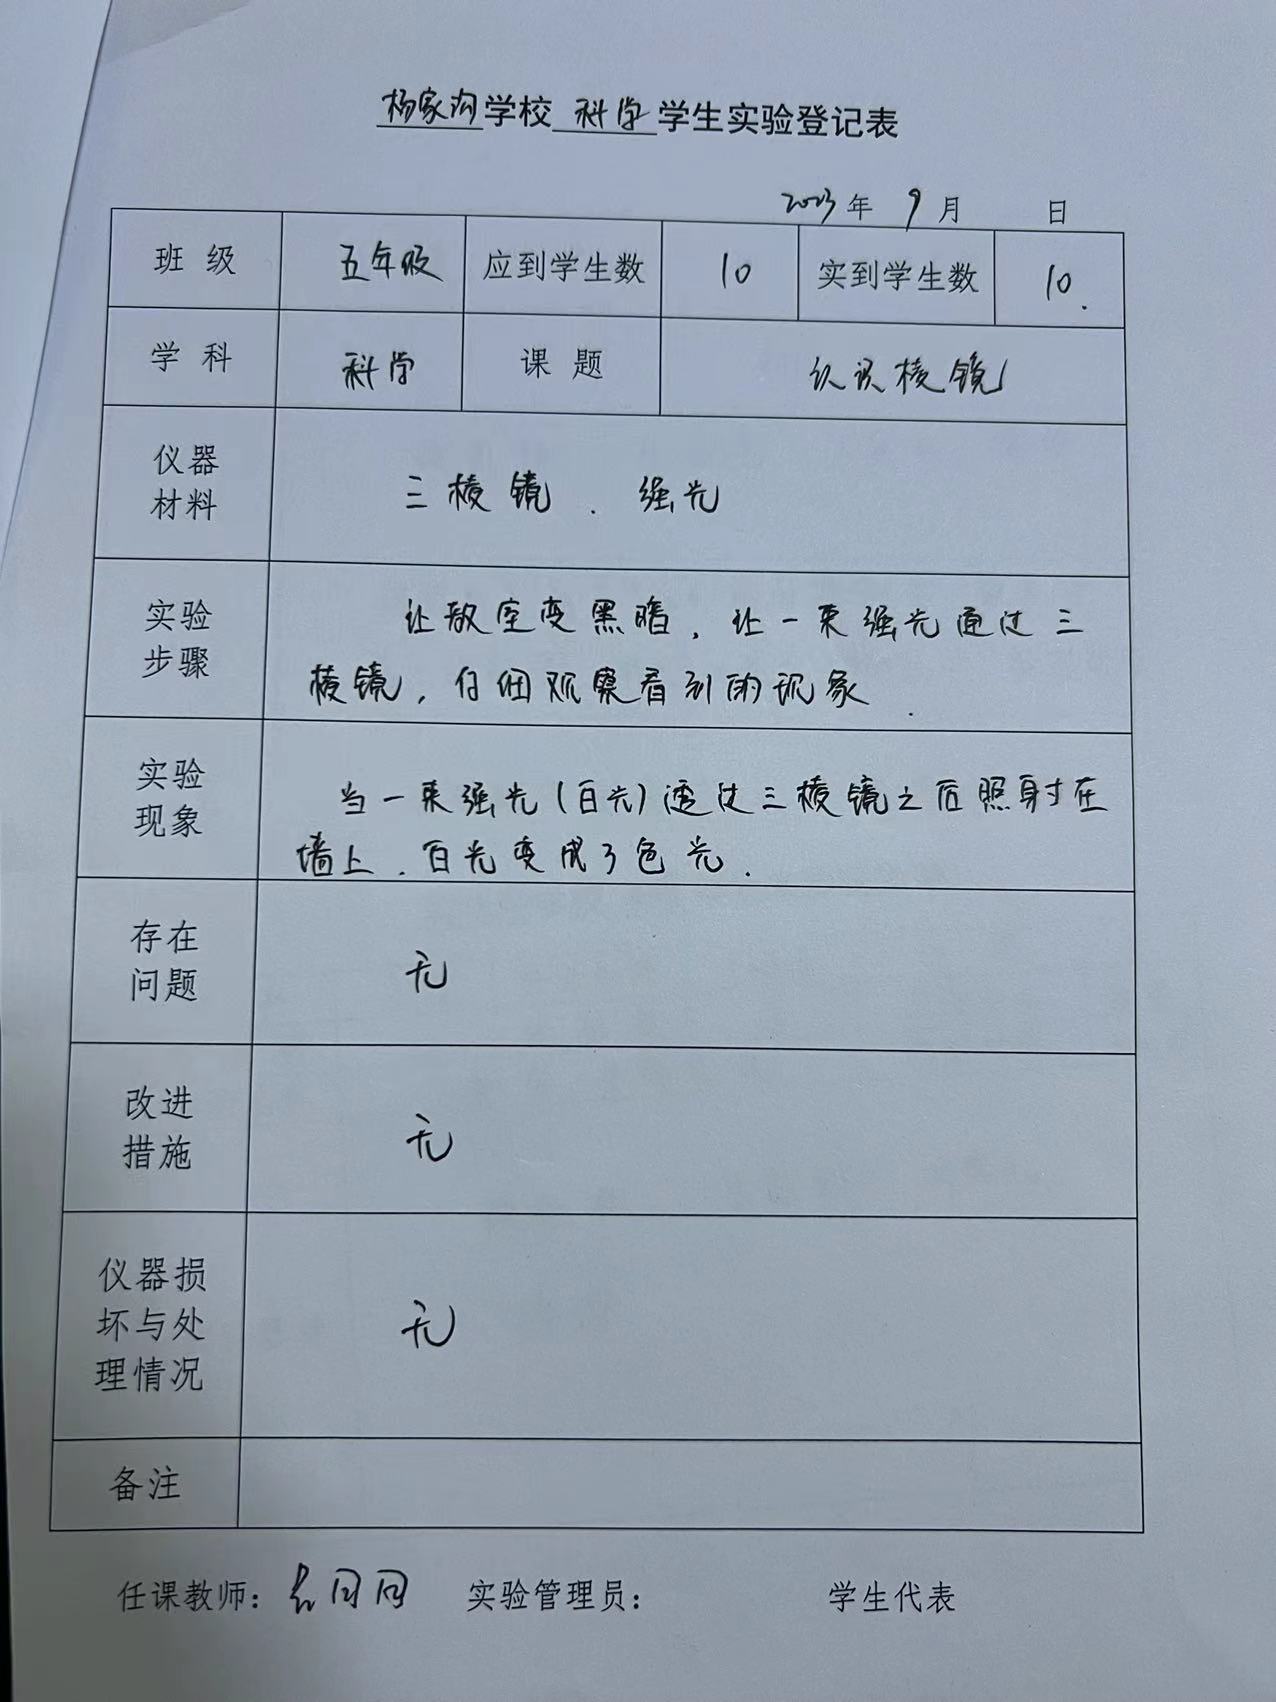 杨家沟学校 科学 学生实验登记表
2023年 9月 日
班级 五年级 应到学生数 10 实到学生数 10.
学科 科学 课题 认识棱镜
仪器
材料
三棱镜 . 强光
实验
步骤
让教室变黑暗，让一束强光通过三
棱镜，仔细观察看到的现象.
实验
现象
当一束强光(白光)透过三棱镜之后照射在
墙上.白光变成了色光.
存在
问题
无
改进
措施
无
仪器损
坏与处
理情况
无
备注
任课教师： 实验管理员： 学生代表